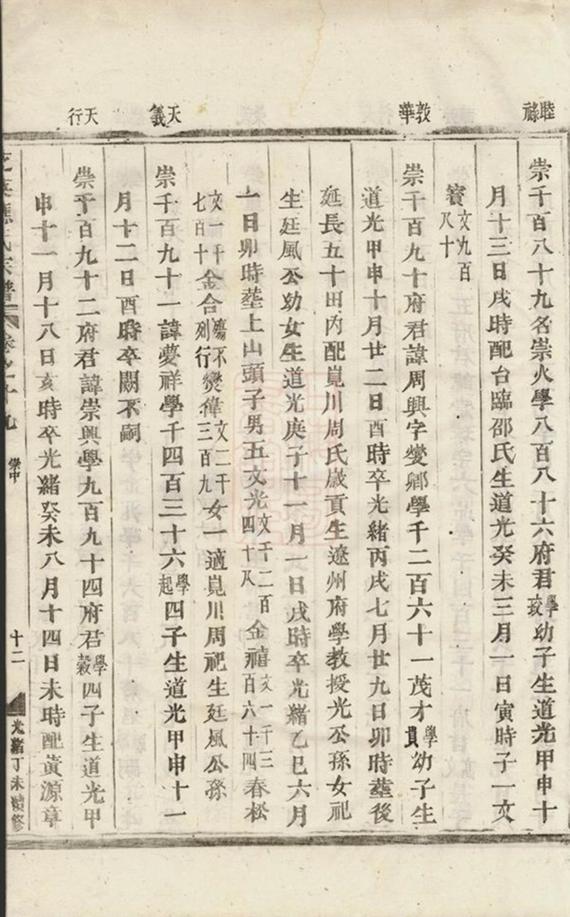 睦祿
敦華
天義
天行
崇千百八十九名崇火學八百八十六府君學㳟幼子生道光甲申十
月十三日戌時配台臨邵氏生道光癸未三月一日寅時子一文
寳文九百八十
崇千百九十府君諱周興字燮卿學千二百六十一茂才學貫幼子生
道光甲申十月廿二日酉時卒光緒丙戌七月廿九日卯時葬後
延長五十田內配嵬川周氏歲貢生遼州府學教授光公孫女祀
生廷風公幼女生道光庚子十一月一日戌時卒光緒乙巳六月
一日卯時葬上山頭子男五文光文千二百四十八金禧文一千三百六十四春松
文一千七百十金合殤不列行燮偉文二千三百九女一適嵬川周祀生廷風公孫
崇千百九十一諱夢祥學千四百三十六學起四子生道光甲申十一
月十二日酉時卒闕不嗣
崇千百九十二府君諱崇興學九百九十四府君學穀四子生道光甲
申十一月十八日亥時卒光緒癸未八月十四日未時配黃源章
氏宗譜 卷之十九 崇中 十二 光緒丁未續修